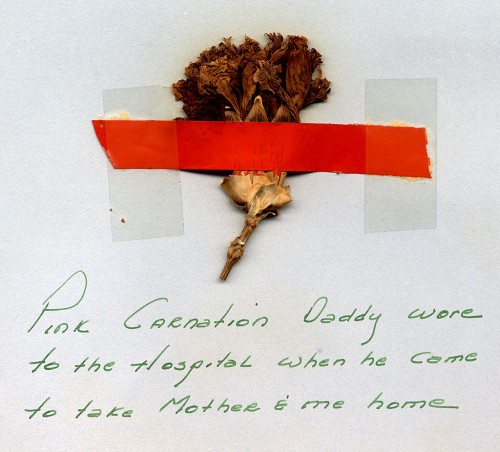 Pink Carnation Daddy wore
to the Hospital when he came
to take Mother & me home